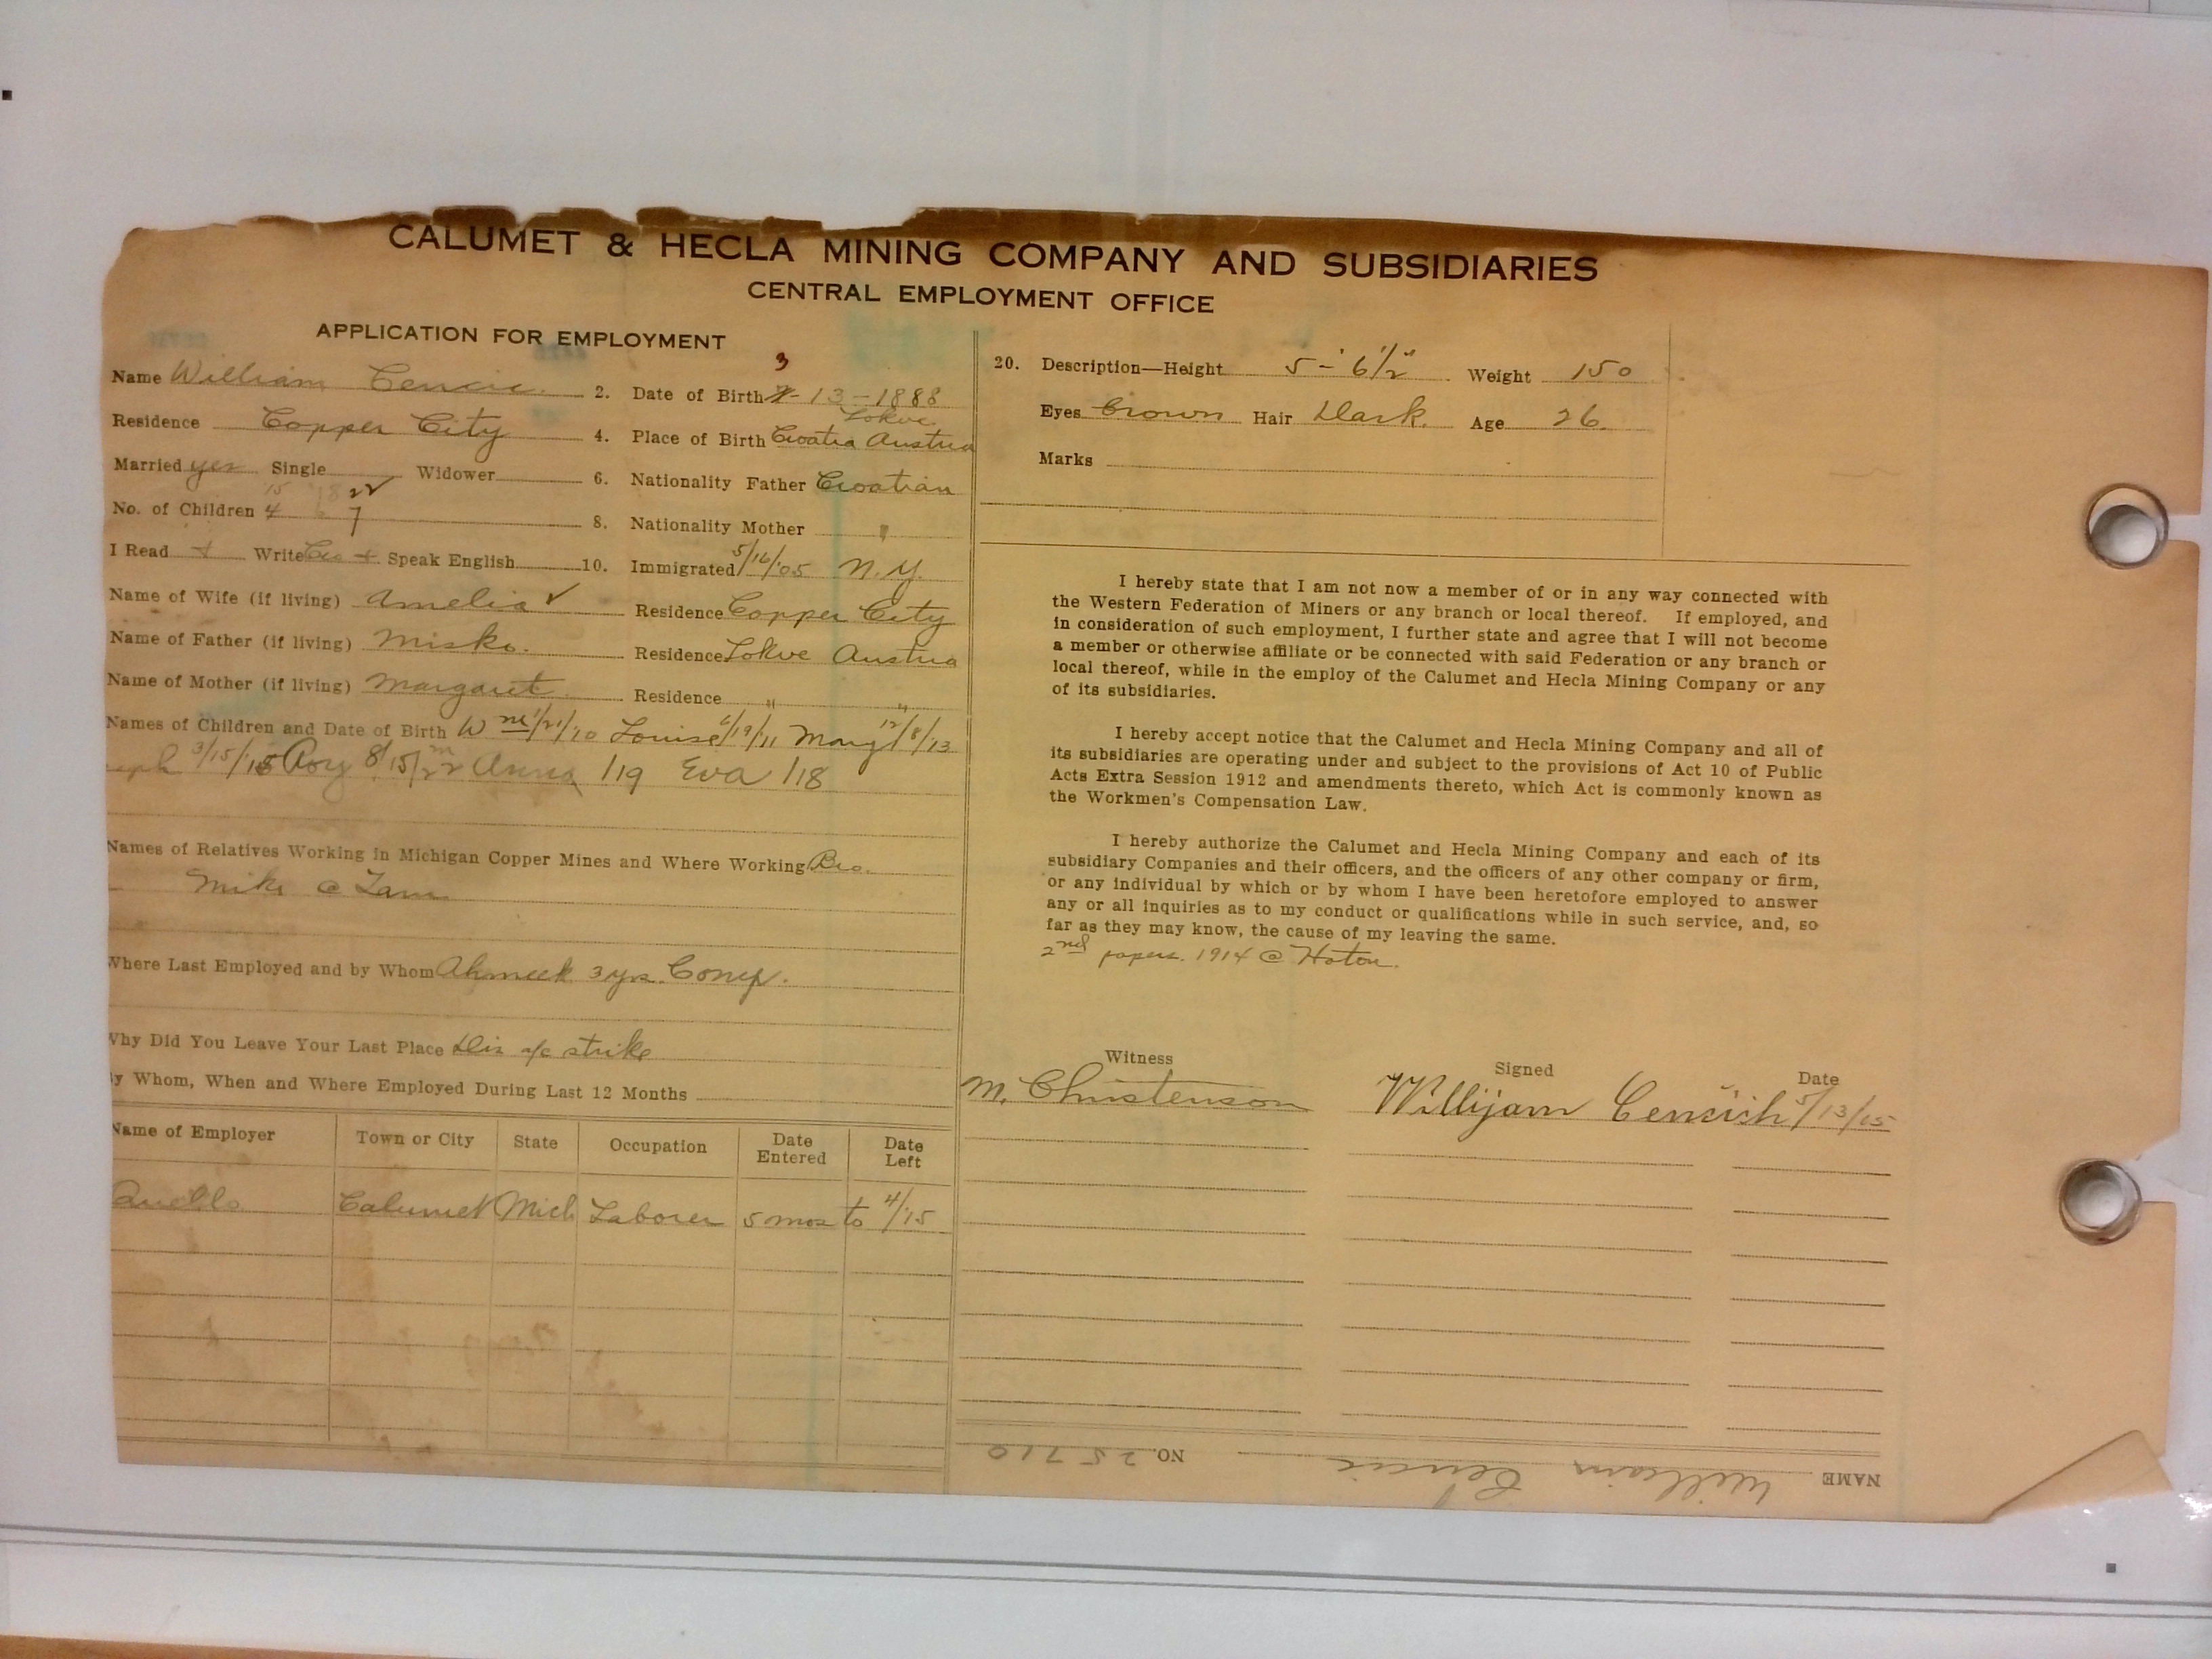 CALUMET & HECLA MINING COMPANY AND SUBSIDIARIES
CENTRAL EMPLOYMENT OFFICE
APPLICATION FOR EMPLOYMENT
Name William Cencic 2. Date of Birth 3 - 13 - 1888
Residence Copper City 4. Place of Birth Croatia Austria Lokve
Married yes Single Widower 6. Nationality Father Croatian
No. of Children 4 6 7 8. Nationality Mother "
I Read + Write Cro + Speak English 10. Immigrated 5/16/05 N.Y.
Name of Wife (if living) Amelia ✓ Residence Copper City
Name of Father (if living) Misko. Residence Lokve Austria
Name of Mother (if living) Margaret Residence " "
Names of Children and Date of Birth Wm 1/21/10 Louise 6/19/11 Mary 12/8/13
eph 3/15/15 Rosy 8/15/22 Anna /19 Eva /18
Names of Relatives Working in Michigan Copper Mines and Where Working Bro.
Mike @ Tam
Where Last Employed and by Whom Ahmeek 3 yrs. Comp.
Why Did You Leave Your Last Place Dis a/c strike
By Whom, When and Where Employed During Last 12 Months
Name of Employer Town or City State Occupation Date Entered Date Left
Calumet Mich Laborer 5 mos to 4/15
20. Description—Height 5 - 6 1/2" Weight 150
Eyes brown Hair Dark. Age 26
Marks
I hereby state that I am not now a member of or in any way connected with
the Western Federation of Miners or any branch or local thereof. If employed, and
in consideration of such employment, I further state and agree that I will not become
a member or otherwise affiliate or be connected with said Federation or any branch or
local thereof, while in the employ of the Calumet and Hecla Mining Company or any
of its subsidiaries.
I hereby accept notice that the Calumet and Hecla Mining Company and all of
its subsidiaries are operating under and subject to the provisions of Act 10 of Public
Acts Extra Session 1912 and amendments thereto, which Act is commonly known as
the Workmen's Compensation Law.
I hereby authorize the Calumet and Hecla Mining Company and each of its
subsidiary Companies and their officers, and the officers of any other company or firm,
or any individual by which or by whom I have been heretofore employed to answer
any or all inquiries as to my conduct or qualifications while in such service, and, so
far as they may know, the cause of my leaving the same.
2nd papers. 1914 @ Hoton.
Witness Signed Date
M. Christenson Willijam Cencich 5/13/15
NAME William Cencic NO. 25710